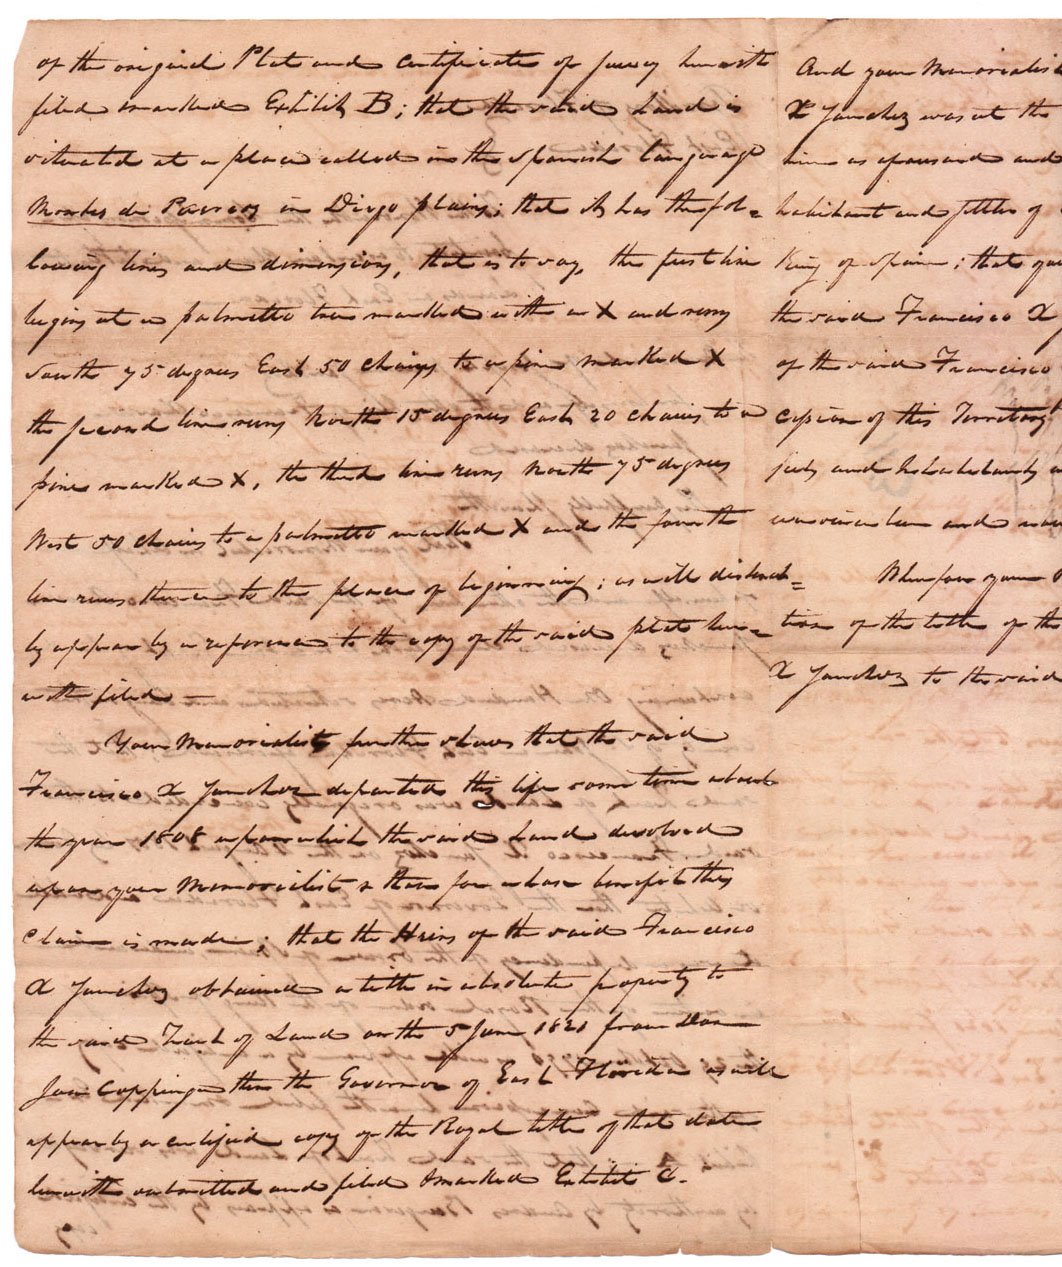 of the original Plat and certificate of survey herewith
filed marked Exhibit B; that the said Land is
situated at a place called in the Spanish language
Montes de in Diego plains; that it has the fol=
lowing lines and dimensions, that is to say, the first line
begins at a palmetto tree marked with a X and runs
South 75 degrees East 50 chains to a pine marked X
the second line runs North 15 degrees East 20 chains to a
pine marked X, the third line runs North 75 degrees
West 50 chains to a palmetto marked X and the fourth
line runs thence to the place of beginning; as will distinct=
ly appear by a reference to the copy of the said plat here=
with filed —
Your Memorialist further shows that the said
Francisco X Sanchez departed this life some time about
the year 1808 upon which the said Land devolved
upon your Memorialist & those for whose benefit this
claim is made; that the Heirs of the said Francisco
X Sanchez obtained a title in absolute property to
the said Tract of Land on the 5 June 1821 from Don
Jose Coppinger then the Governor of East Florida as will
appear by a certified copy of the Royal title of that date
herewith submitted and filed & marked Exhibit C.
And your Memorialist
X Sanchez was at the
time as aforesaid and
habitant and settler of
King of Spain; that your
the said Francisco X
of the said Francisco
cession of this Territory
jects and
and now
Wherefore your
tion of the title of the
X Sanchez to the said